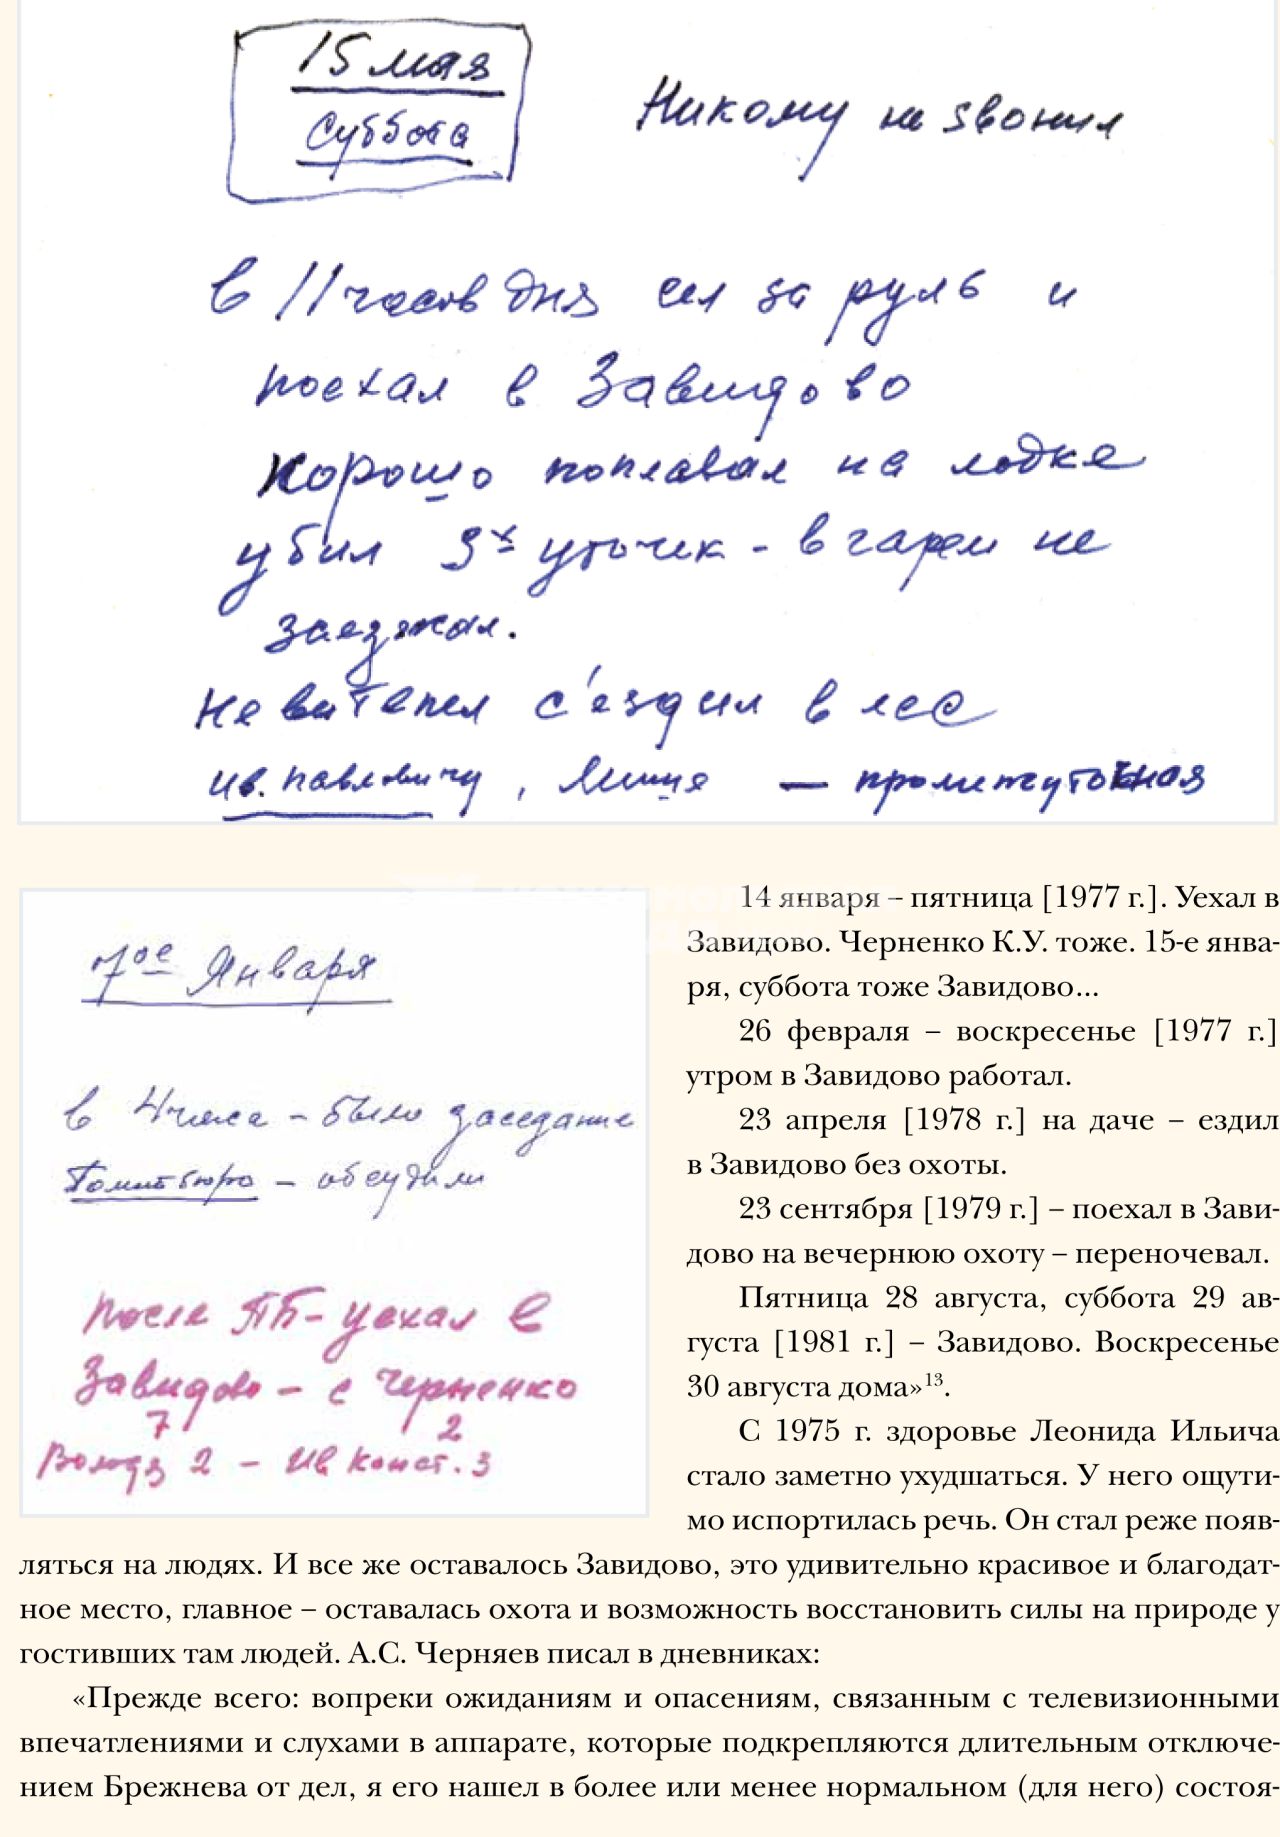 15 мая
Суббота
Никому не звонил
в 11 часов дня сел за руль и
поехал в Завидово
хорошо поплавал на лодке
убил 9х уточек - в гарем не
заезжал.
съездил в лес
Ив. Павловичу, — промежуточная
7ое Января
в 4 часа - было заседание
Политбюро - обсудили
После ПБ - уехал в
Завидово - с Черненко
7 2
Володя 2 - Ив Конст. 3
14 января – пятница [1977 г.]. Уехал в
Завидово. Черненко К.У. тоже. 15-е янва-
ря, суббота тоже Завидово...
26 февраля – воскресенье [1977 г.]
утром в Завидово работал.
23 апреля [1978 г.] на даче – ездил
в Завидово без охоты.
23 сентября [1979 г.] – поехал в Зави-
дово на вечернюю охоту – переночевал.
Пятница 28 августа, суббота 29 ав-
густа [1981 г.] – Завидово. Воскресенье
30 августа дома»13.
С 1975 г. здоровье Леонида Ильича
стало заметно ухудшаться. У него ощути-
мо испортилась речь. Он стал реже появ-
ляться на людях. И все же оставалось Завидово, это удивительно красивое и благодат-
ное место, главное – оставалась охота и возможность восстановить силы на природе у
гостивших там людей. А.С. Черняев писал в дневниках:
«Прежде всего: вопреки ожиданиям и опасениям, связанным с телевизионными
впечатлениями и слухами в аппарате, которые подкрепляются длительным отключе-
нием Брежнева от дел, я его нашел в более или менее нормальном (для него) состоя-